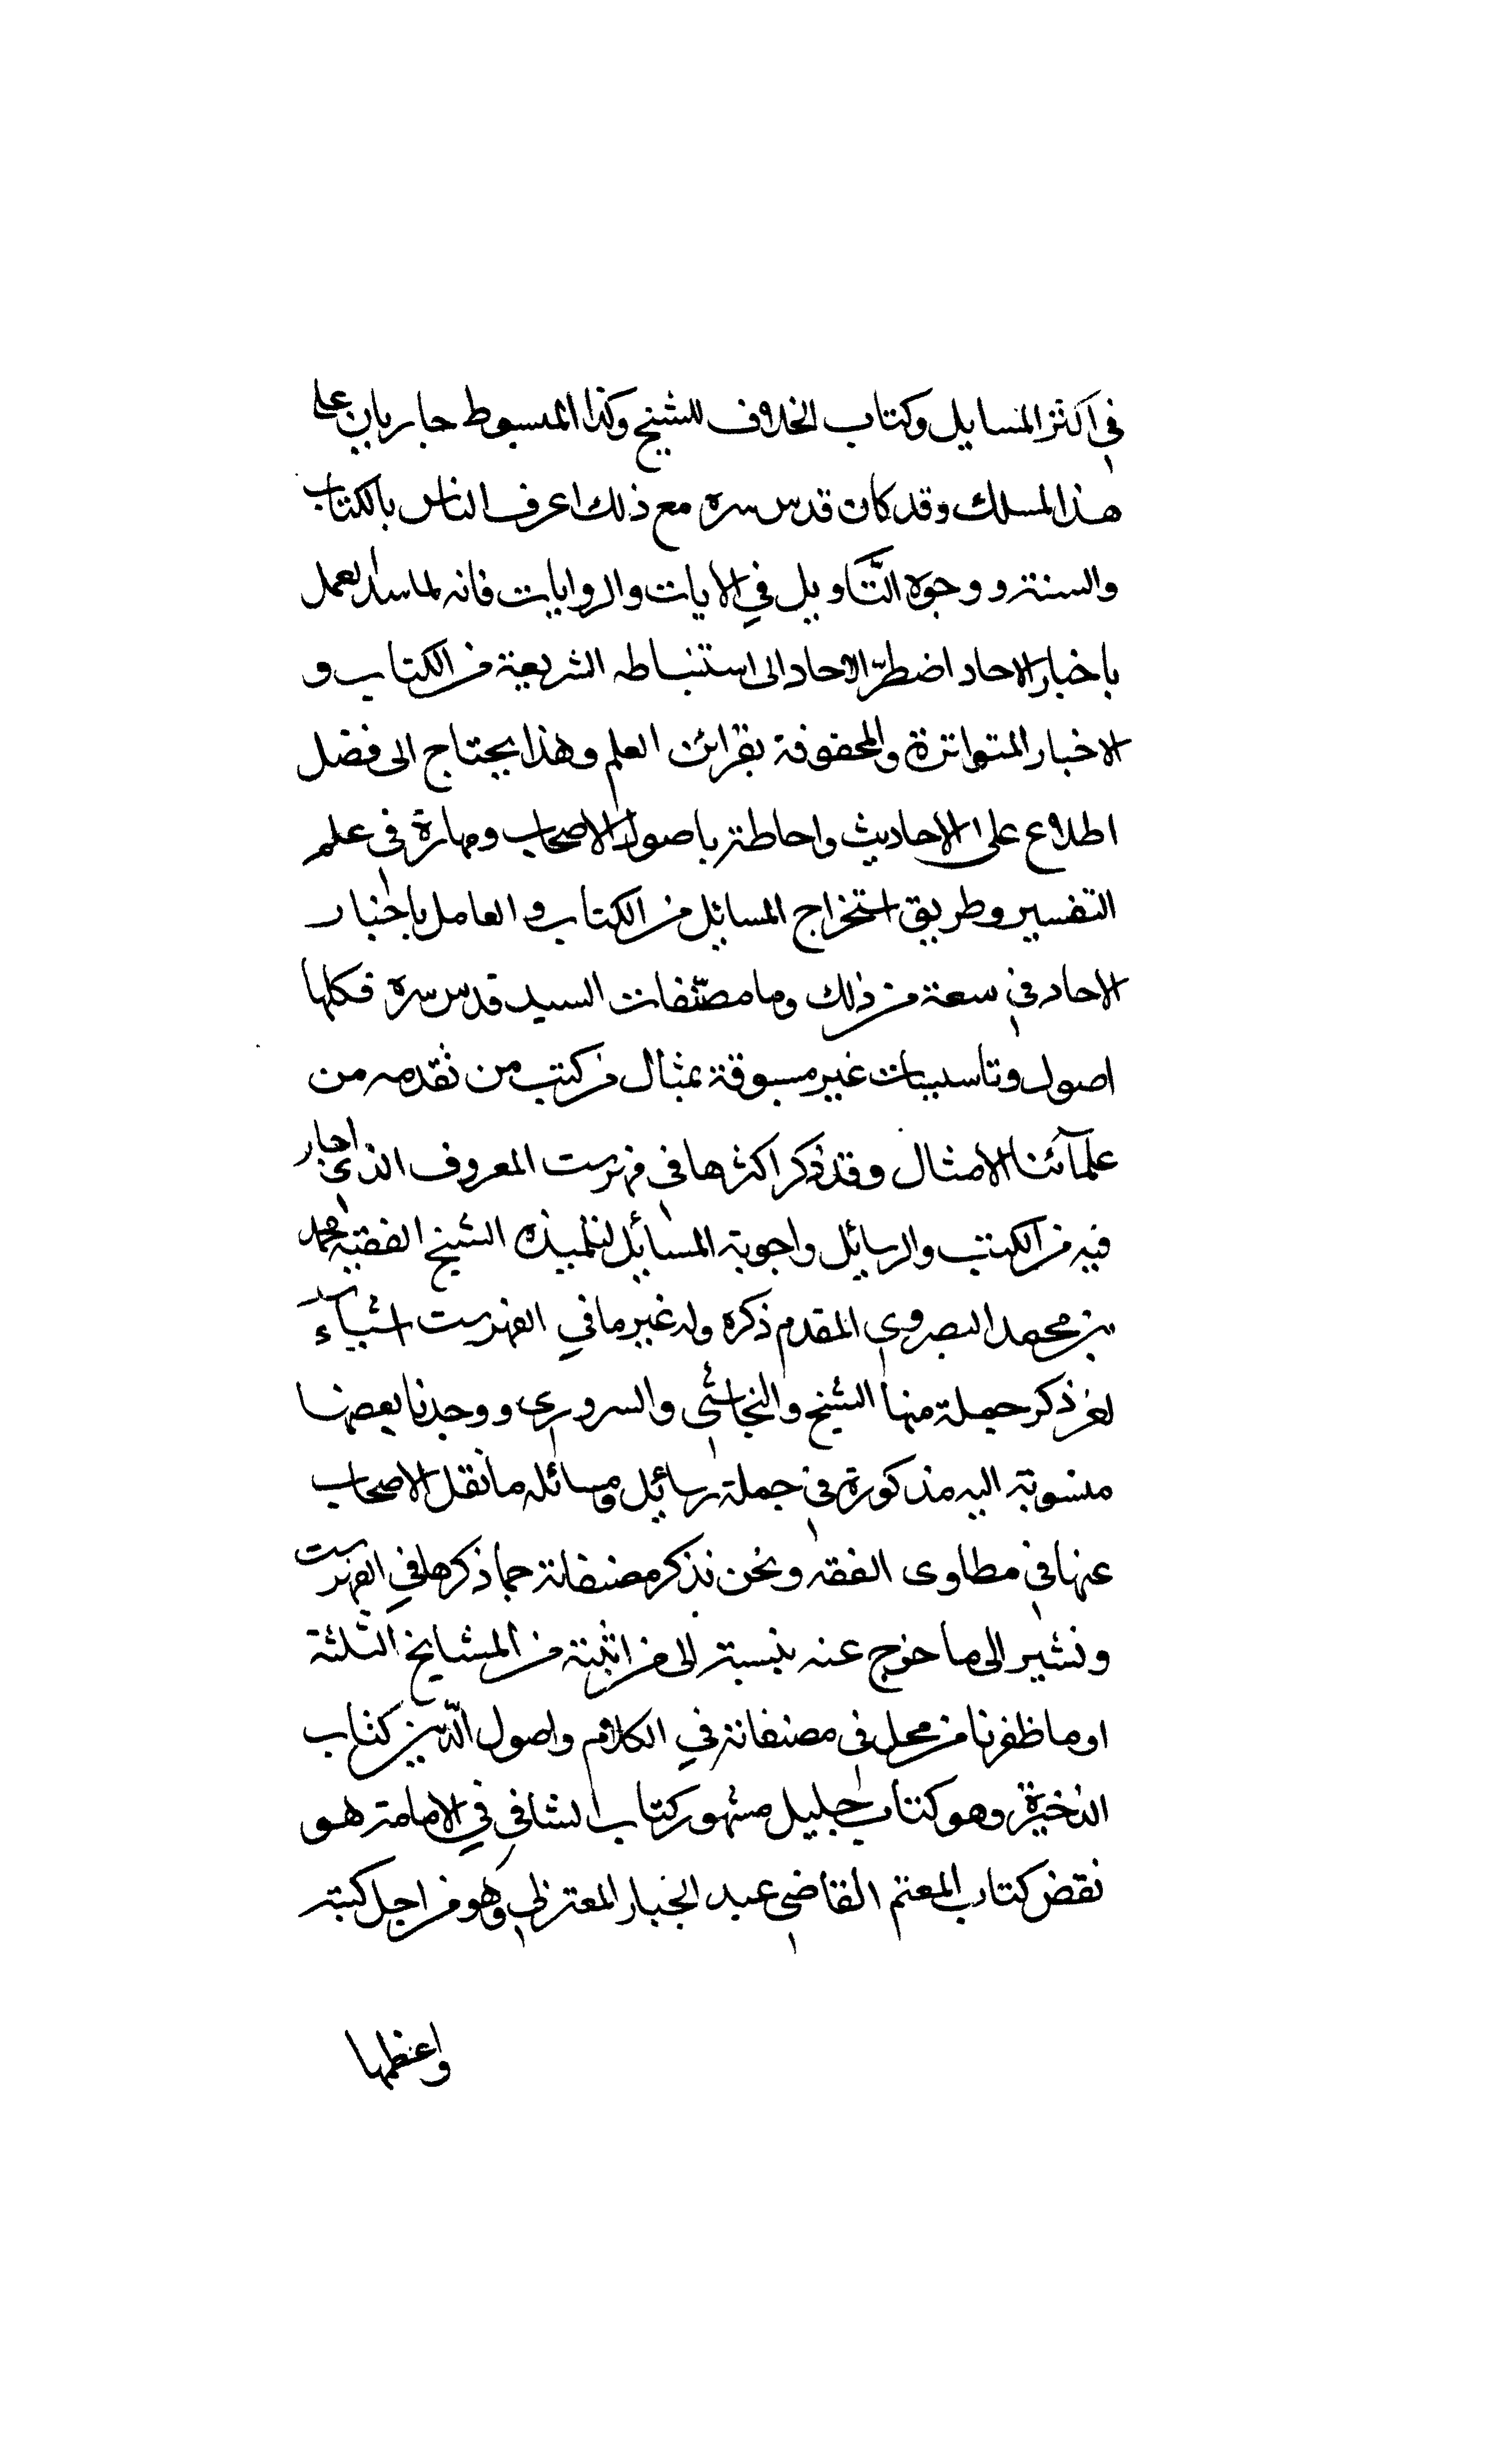 في اكثر المسايل وكتاب الخلاف للشيخ وكذا المبسوط جاريان على
هذا المسلك وقد كان قدس سره مع ذلك اعرف الناس بالكتاب
والسنة و وجوه التَّاويل في الايات والروايات فانه لما سد العمل
باخبار الاحاد اضطرّ الاحاد الى استنباطه الشريعة من الكتاب و
الاخبار المتواترة والمحفوفة بقرائن العلم وهذا يحتاج الى فضل
اطلاع على الاحاديث واحاطة باصول الاصحاب ومهارة في علم
التفسير وطريق استخراج المسائل من الكتاب و العامل باخبار
الاحاد في سعة من ذلك وما مصنّفات السيد قدس سره فكلها
اصول وتاسيسات غير مسبوقة بمثال من كتب من تقدمه من
علمآئنا الامثال وقد ذكر اكثرها في فهرست المعروف الذي اجار
فيه من الكتب والرسائل واجوبة المسائل لتلميذه الشيخ الفقيه محمد
بن محمد البصروي المقدم ذكره وله غير ما في الفهرست اشيآء
لغز ذكر جملة منها الشيخ والنجاشي والسروري و وجدنا بعضها
منسوبة اليه مذكورة في جملة رسائل ومسائله ما نقل الاصحاب
عنها في مطاوى الفقه ونحن نذكر مصنفاتة حما ذكرها في الفهرست
ونشير الى ما خرج عنه بنسبة الى من اثبته من المشايخ الثلثة
او ما ظفرنا من محل في مصنفاته في الكلام واصول الدّين كتاب
الذخيرة وهو كتاب جليل مشهور كتاب الشافي في الامامة هو
نقض كتاب المعنم القاضي عبد الجبار المعتزلي وهو من اجل كتبه
واعظمها